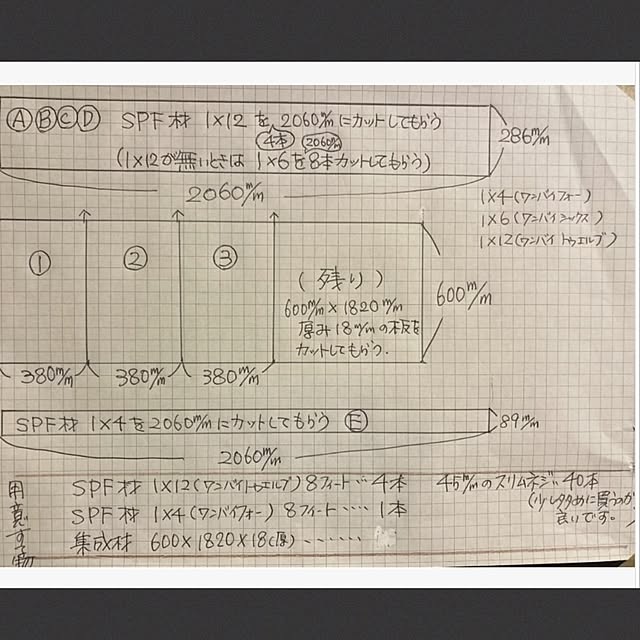 Ⓐ Ⓑ Ⓒ Ⓓ SPF材 1×12を2060m/mにカットしてもらう
4本 2060m/m
(1×12が無いときは 1×6を8本カットしてもらう)
286m/m
2060m/m
1×4(ワンバイフォー)
1×6(ワンバイシックス)
1×12(ワンバイトゥエルブ)
① ② ③
(残り)
600m/m×1820m/m
厚み18m/mの板を
カットしてもらう.
600m/m
380m/m 380m/m 380m/m
SPF材 1×4を2060m/mにカットしてもらう Ⓔ
89m/m
2060m/m
用意する物
SPF材 1×12(ワンバイトゥエルブ)8フィート‥4本
45m/mのスリムネジ‥40本
(少し多めに買うのが
良いです。
SPF材 1×4(ワンバイフォー) 8フィート‥‥1本
集成材 600×1820×18(厚)‥‥‥